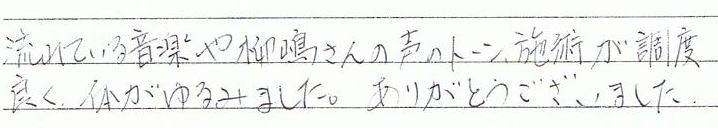 流れている音楽や柳嶋さんの声のトーン、施術が調度
良く、体がゆるみました。ありがとうございました。